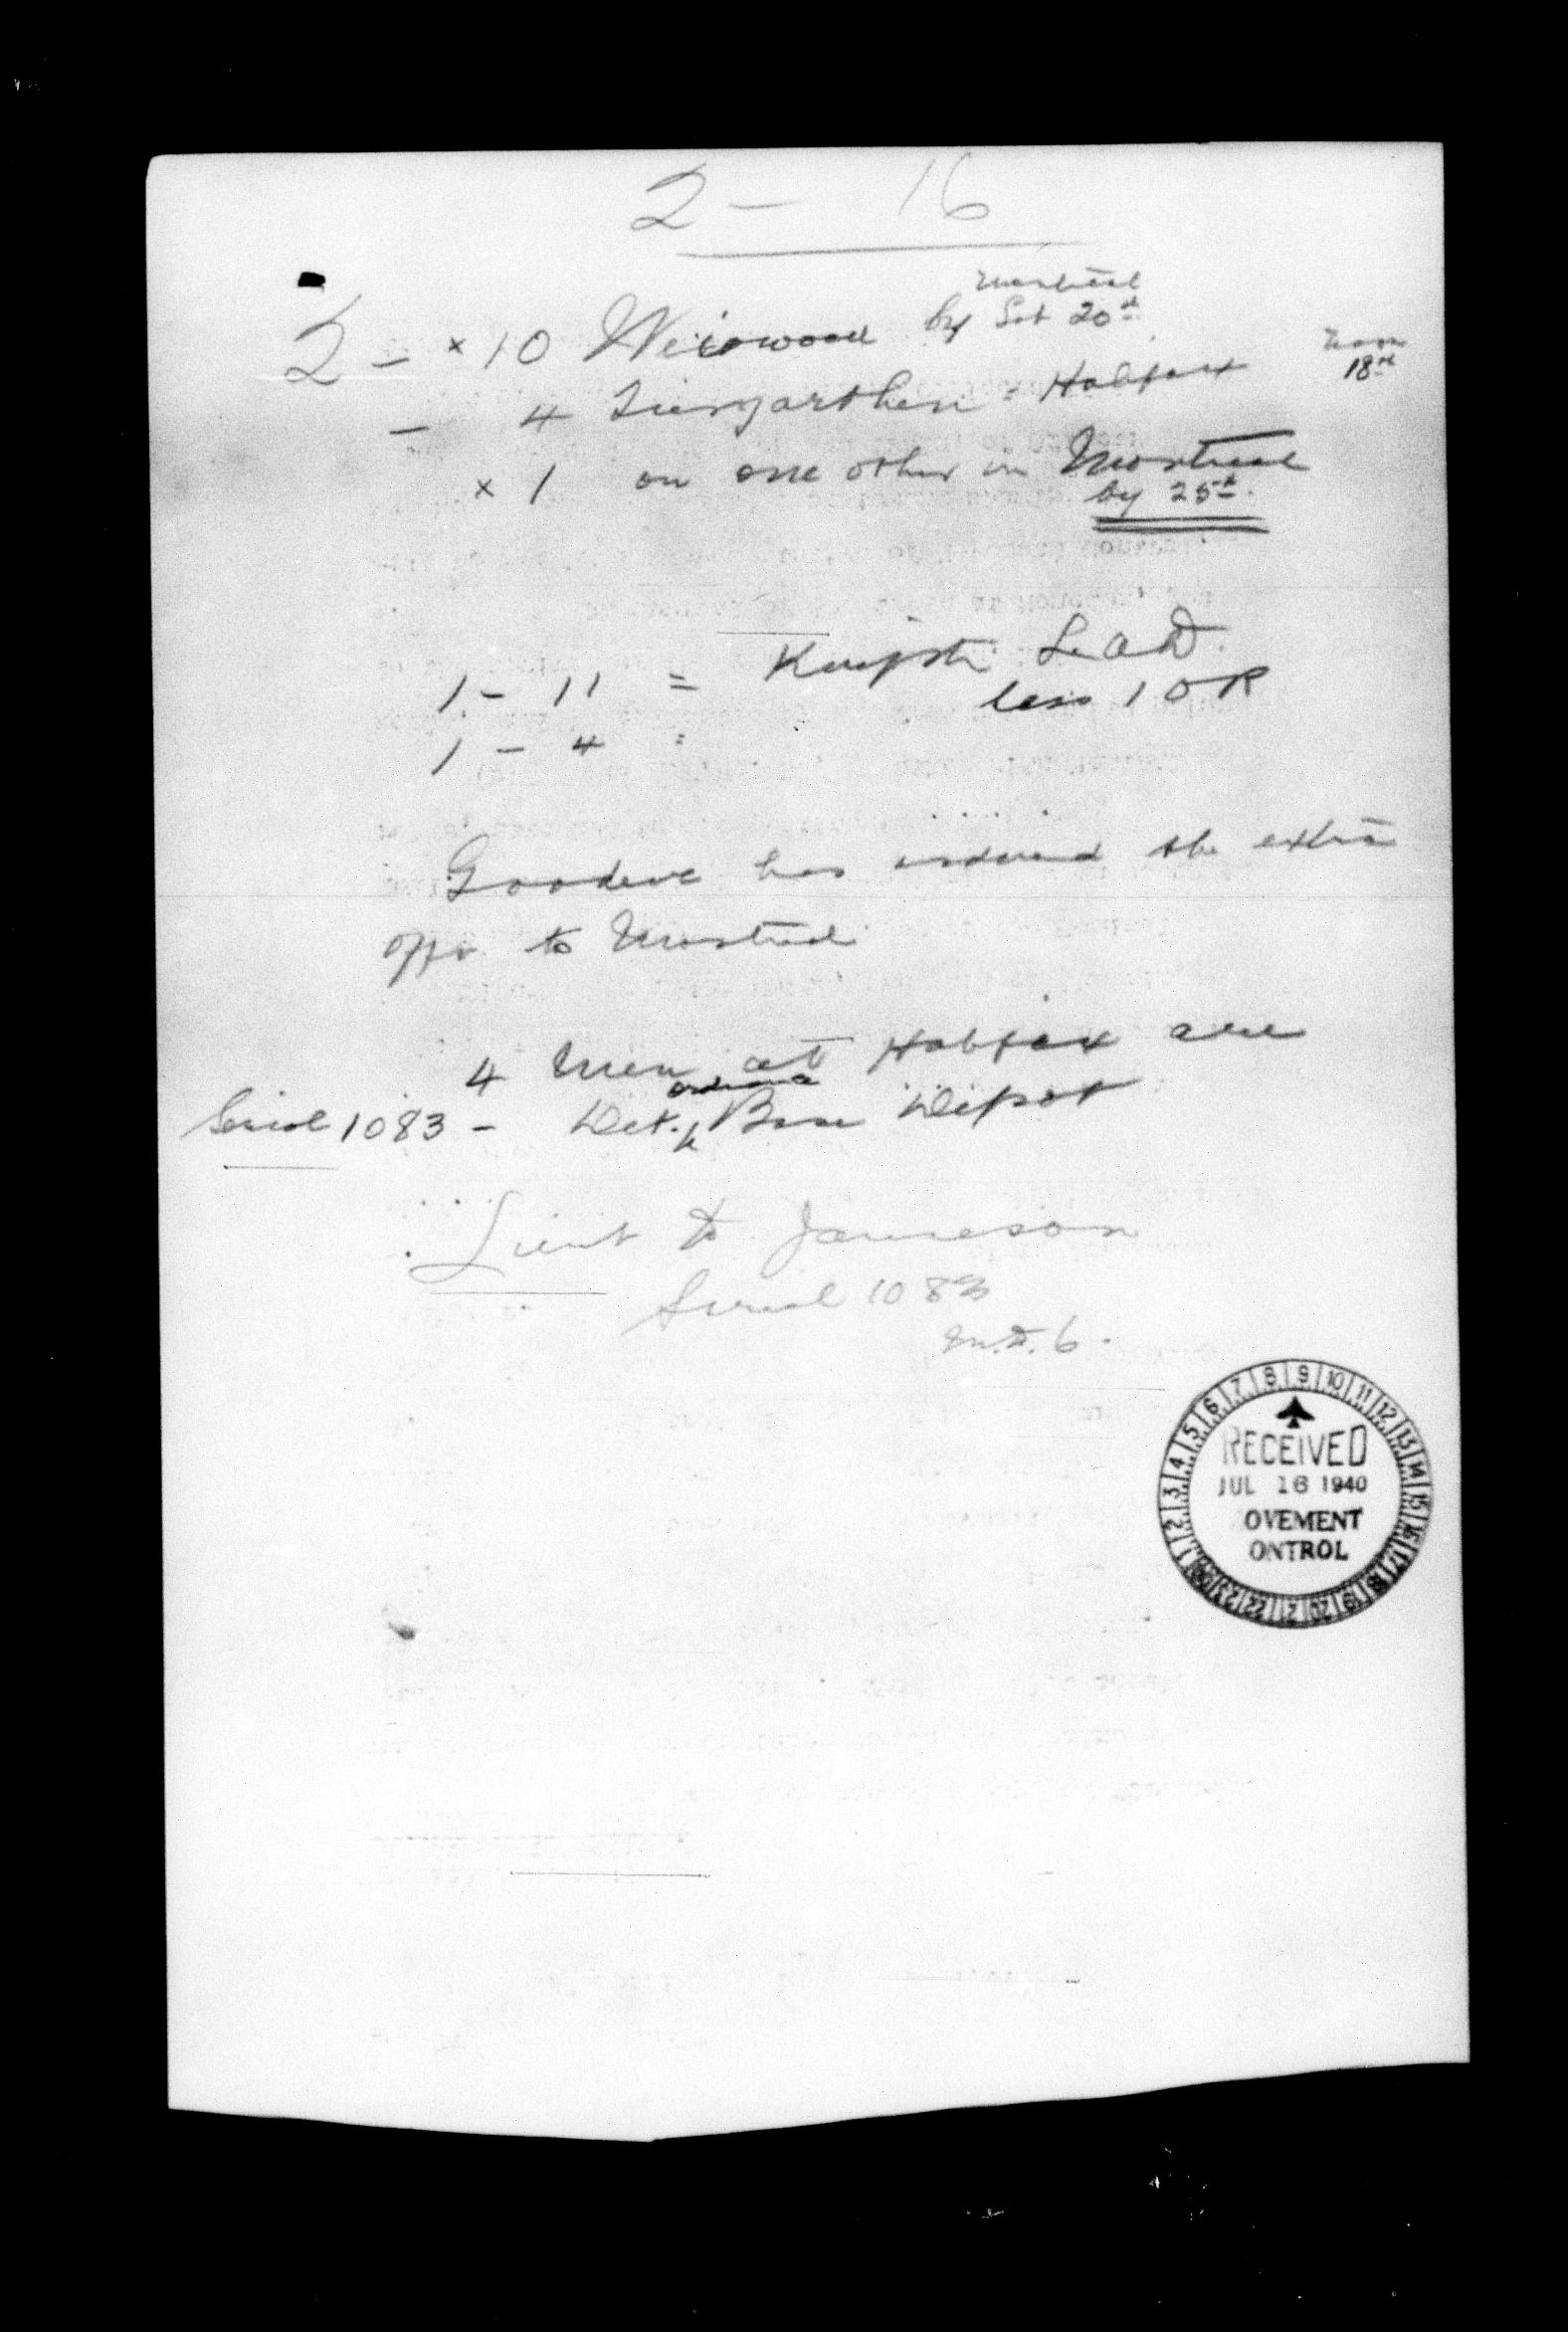 2 — 16
Montreal
2 – x 10 Weirwood by Sat 20th
— 4 = Halifax Noon 18th
x 1 on one other in Montreal
by 25th.
1 – 11 = L.A.D.
less 1 OR
1 – 4 =
Goodeve has ordered the extra
offr. to Montreal
4 Men at Halifax are
Serial 1083 – Det. Ordnance Base Depot
Lieut Jameson
Serial 1083
M.D. 6.
1 2 3 4 5 6 7 8 9 10 11 12 13 14 15 16 17 18 19 20 21 22 23
RECEIVED
JUL 16 1940
OVEMENT
ONTROL